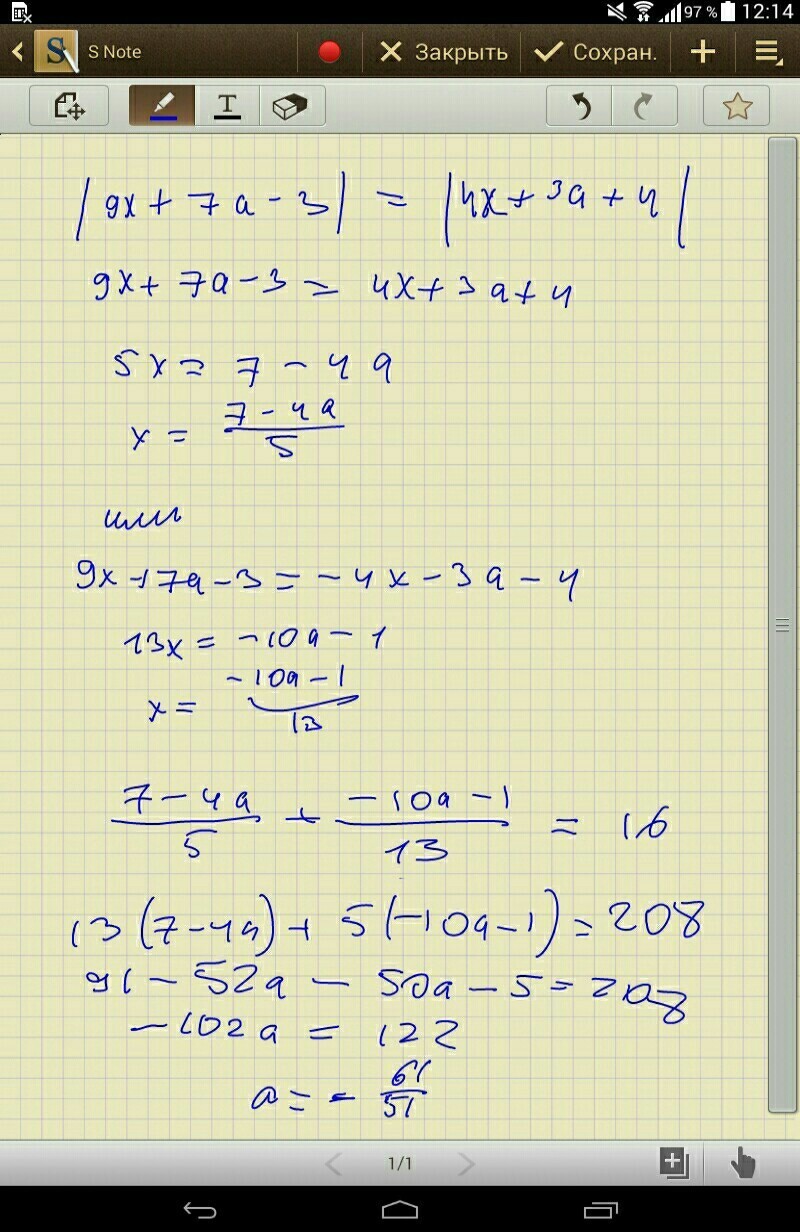 97 % 12:14
S Note Закрыть Сохран.
T
|9x + 7a - 3| = |4x + 3a + 4|
9x + 7a - 3 = 4x + 3a + 4
5x = 7 - 4a
x = (7 - 4a)/5
или
9x + 7a - 3 = -4x - 3a - 4
13x = -10a - 1
x = (-10a - 1)/13
(7 - 4a)/5 + (-10a - 1)/13 = 16
13(7 - 4a) + 5(-10a - 1) = 208
91 - 52a - 50a - 5 = 208
-102a = 122
a = - 61/51
1/1